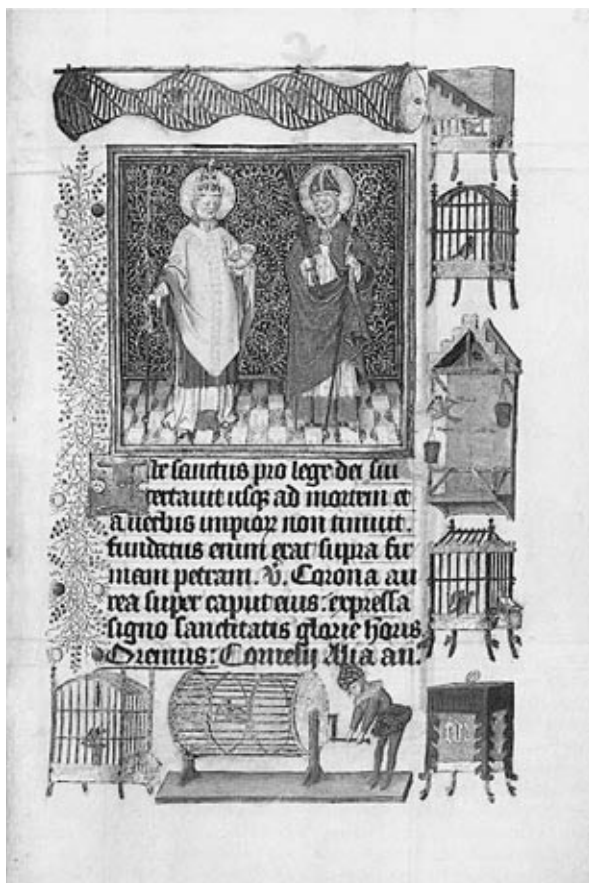 Iste sanctus pro lege dei sui
certauit usq; ad mortem et
a uerbis impioꝝ non timuit.
fundatus enim erat supra fir
mam petram. V. Corona au
rea super caput eius: expressa
signo sanctitatis glorie honis
Oremus: Cornelij